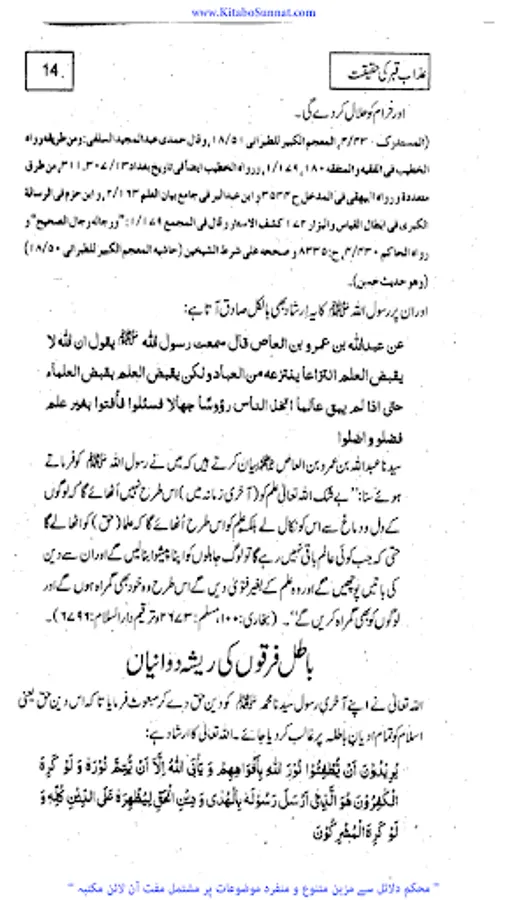 www.KitaboSunnat.com
عذاب قبر کی حقیقت
14
اور حرام کو حلال کر دے گی۔
(المستدرک ۳/۴۳۰، المعجم الکبیر للطبرانی ۱۸/۵۱ وقال حمدی عبدالمجید السلفی: ومن طریقہ رواہ
الخطیب فی الفقیہ والمتفقہ ۱۸۰، ۱/۱۷۹، ورواہ الخطیب ایضاً فی تاریخ بغداد ۱۳/۳۰۷، ۳۱۱، من طرق
متعددۃ ورواہ البیہقی فی المدخل ح وابن عبدالبر فی جامع بیان العلم ۲/۱۶۳ وابن حزم فی الرسالۃ
الکبری فی ابطال القیاس والبزار ۱۷۲ کشف الاستار وقال فی المجمع ۱/۱۷۹: "ورجالہ رجال الصحیح" و
رواہ الحاکم ۴/۴۳۰، ح: ۸۳۲۵ و صححہ علی شرط الشیخین (حاشیہ المعجم الکبیر للطبرانی ۱۸/۵۰)
(وھو حدیث حسن)۔
اور ان پر رسول اللہ ﷺ کا یہ ارشاد بھی بالکل صادق آتا ہے:
عن عبداللہ بن عمرو بن العاص قال سمعت رسول للہ ﷺ یقول ان للہ لا
یقبض العلم انتزاعاً ینتزعہ من العباد ولکن یقبض العلم بقبض العلماء
حتی اذا لم یبق عالماً اتخذ الناس رؤوسًا جھالا فسئلوا فأفتوا بغیر علم
فضلو واضلوا
سیدنا عبداللہ بن عمرو بن العاص بیان کرتے ہیں کہ میں نے رسول اللہ ﷺ کو فرماتے
ہوئے سنا: "بے شک اللہ تعالیٰ علم کو (آخری زمانہ میں) اس طرح نہیں اُٹھائے گا کہ لوگوں
کے دل و دماغ سے اس کو نکال لے بلکہ علم کو اس طرح اُٹھائے گا کہ علما (حق) کو اٹھا لے گا
حتی کہ جب کوئی عالم باقی نہیں رہے گا تو لوگ جاہلوں کو اپنا پیشوا بنا لیں گے اور ان سے دین
کی باتیں پوچھیں گے اور وہ علم کے بغیر فتویٰ دیں گے اس طرح وہ خود بھی گمراہ ہوں گے اور
لوگوں کو بھی گمراہ کریں گے"۔ (بخاری: ۱۰۰، مسلم: ۲۶۷۳ و ترقیم دارالسلام: ۶۷۹۶)۔
باطل فرقوں کی ریشہ دوانیاں
اللہ تعالیٰ نے اپنے آخری رسول سیدنا محمد ﷺ کو دین حق دے کر مبعوث فرمایا تا کہ اس دین حق یعنی
اسلام کو تمام ادیان باطلہ پر غالب کر دیا جائے۔ اللہ تعالیٰ کا ارشاد ہے:
یُرِیْدُوْنَ اَنْ یُّطْفِئُوْا نُوْرَ اللہِ بِاَفْوَاھِھِمْ وَ یَاْبَی اللہُ اِلَّا اَنْ یُّتِمَّ نُوْرَہٗ وَ لَوْ کَرِہَ
الْکٰفِرُوْنَ ھُوَ الَّذِیْ اَرْسَلَ رَسُوْلَہٗ بِالْھُدٰی وَ دِیْنِ الْحَقِّ لِیُظْھِرَہٗ عَلَی الدِّیْنِ کُلِّہٖ وَ
لَوْ کَرِہَ الْمُشْرِکُوْنَ
" محکم دلائل سے مزین متنوع و منفرد موضوعات پر مشتمل مفت آن لائن مکتبہ "